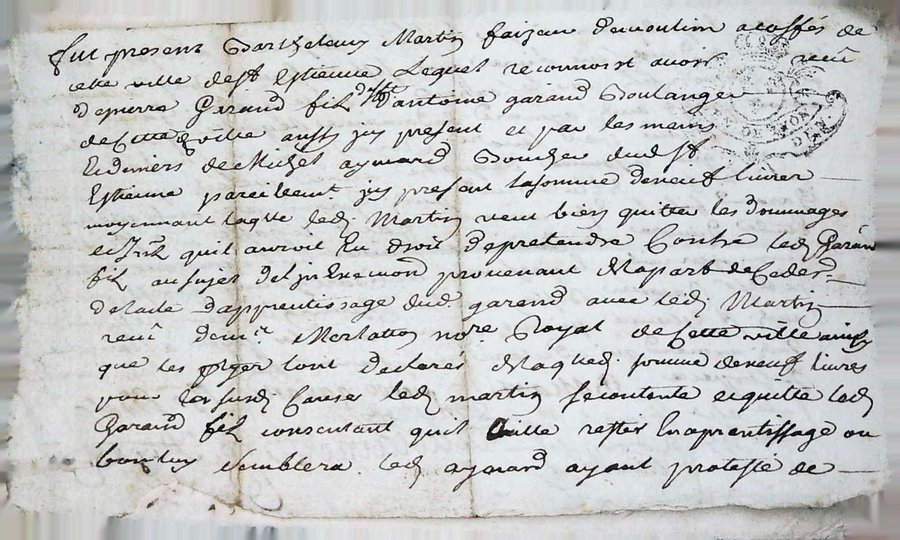 fut present Barthelemy Martin faizeur demoulin a caffés de
cette ville de St Estienne Lequel reconnoist avoir reçû
depierre Garand fils dantoine garand Boulanger
decette ville aussy icy present et par les mains
Et deniers de Michel aymard Boucher dudt St
Estienne pareillemt icy present lasomme deneuf livres
moyennant laqlle ledt Martin veut bien quitter les Dommages
et Intz quil auroit Eu droit depretendre Contre ledt Garand
fils au sujet de provenant delapart de
delacte dapprentissage dudt garand avec ledt Martin
reçû dem.e Merlatton nore Royal de Cette ville ainsy
que les parties lont declaré. delaquelle somme deneuf livres
pour les susd Causes ledt martin se contente et quitte ledt
Garand fils consentant quil aille rester En aprentissage ou
bon luy semblera. ledt aymard ayant protesté de